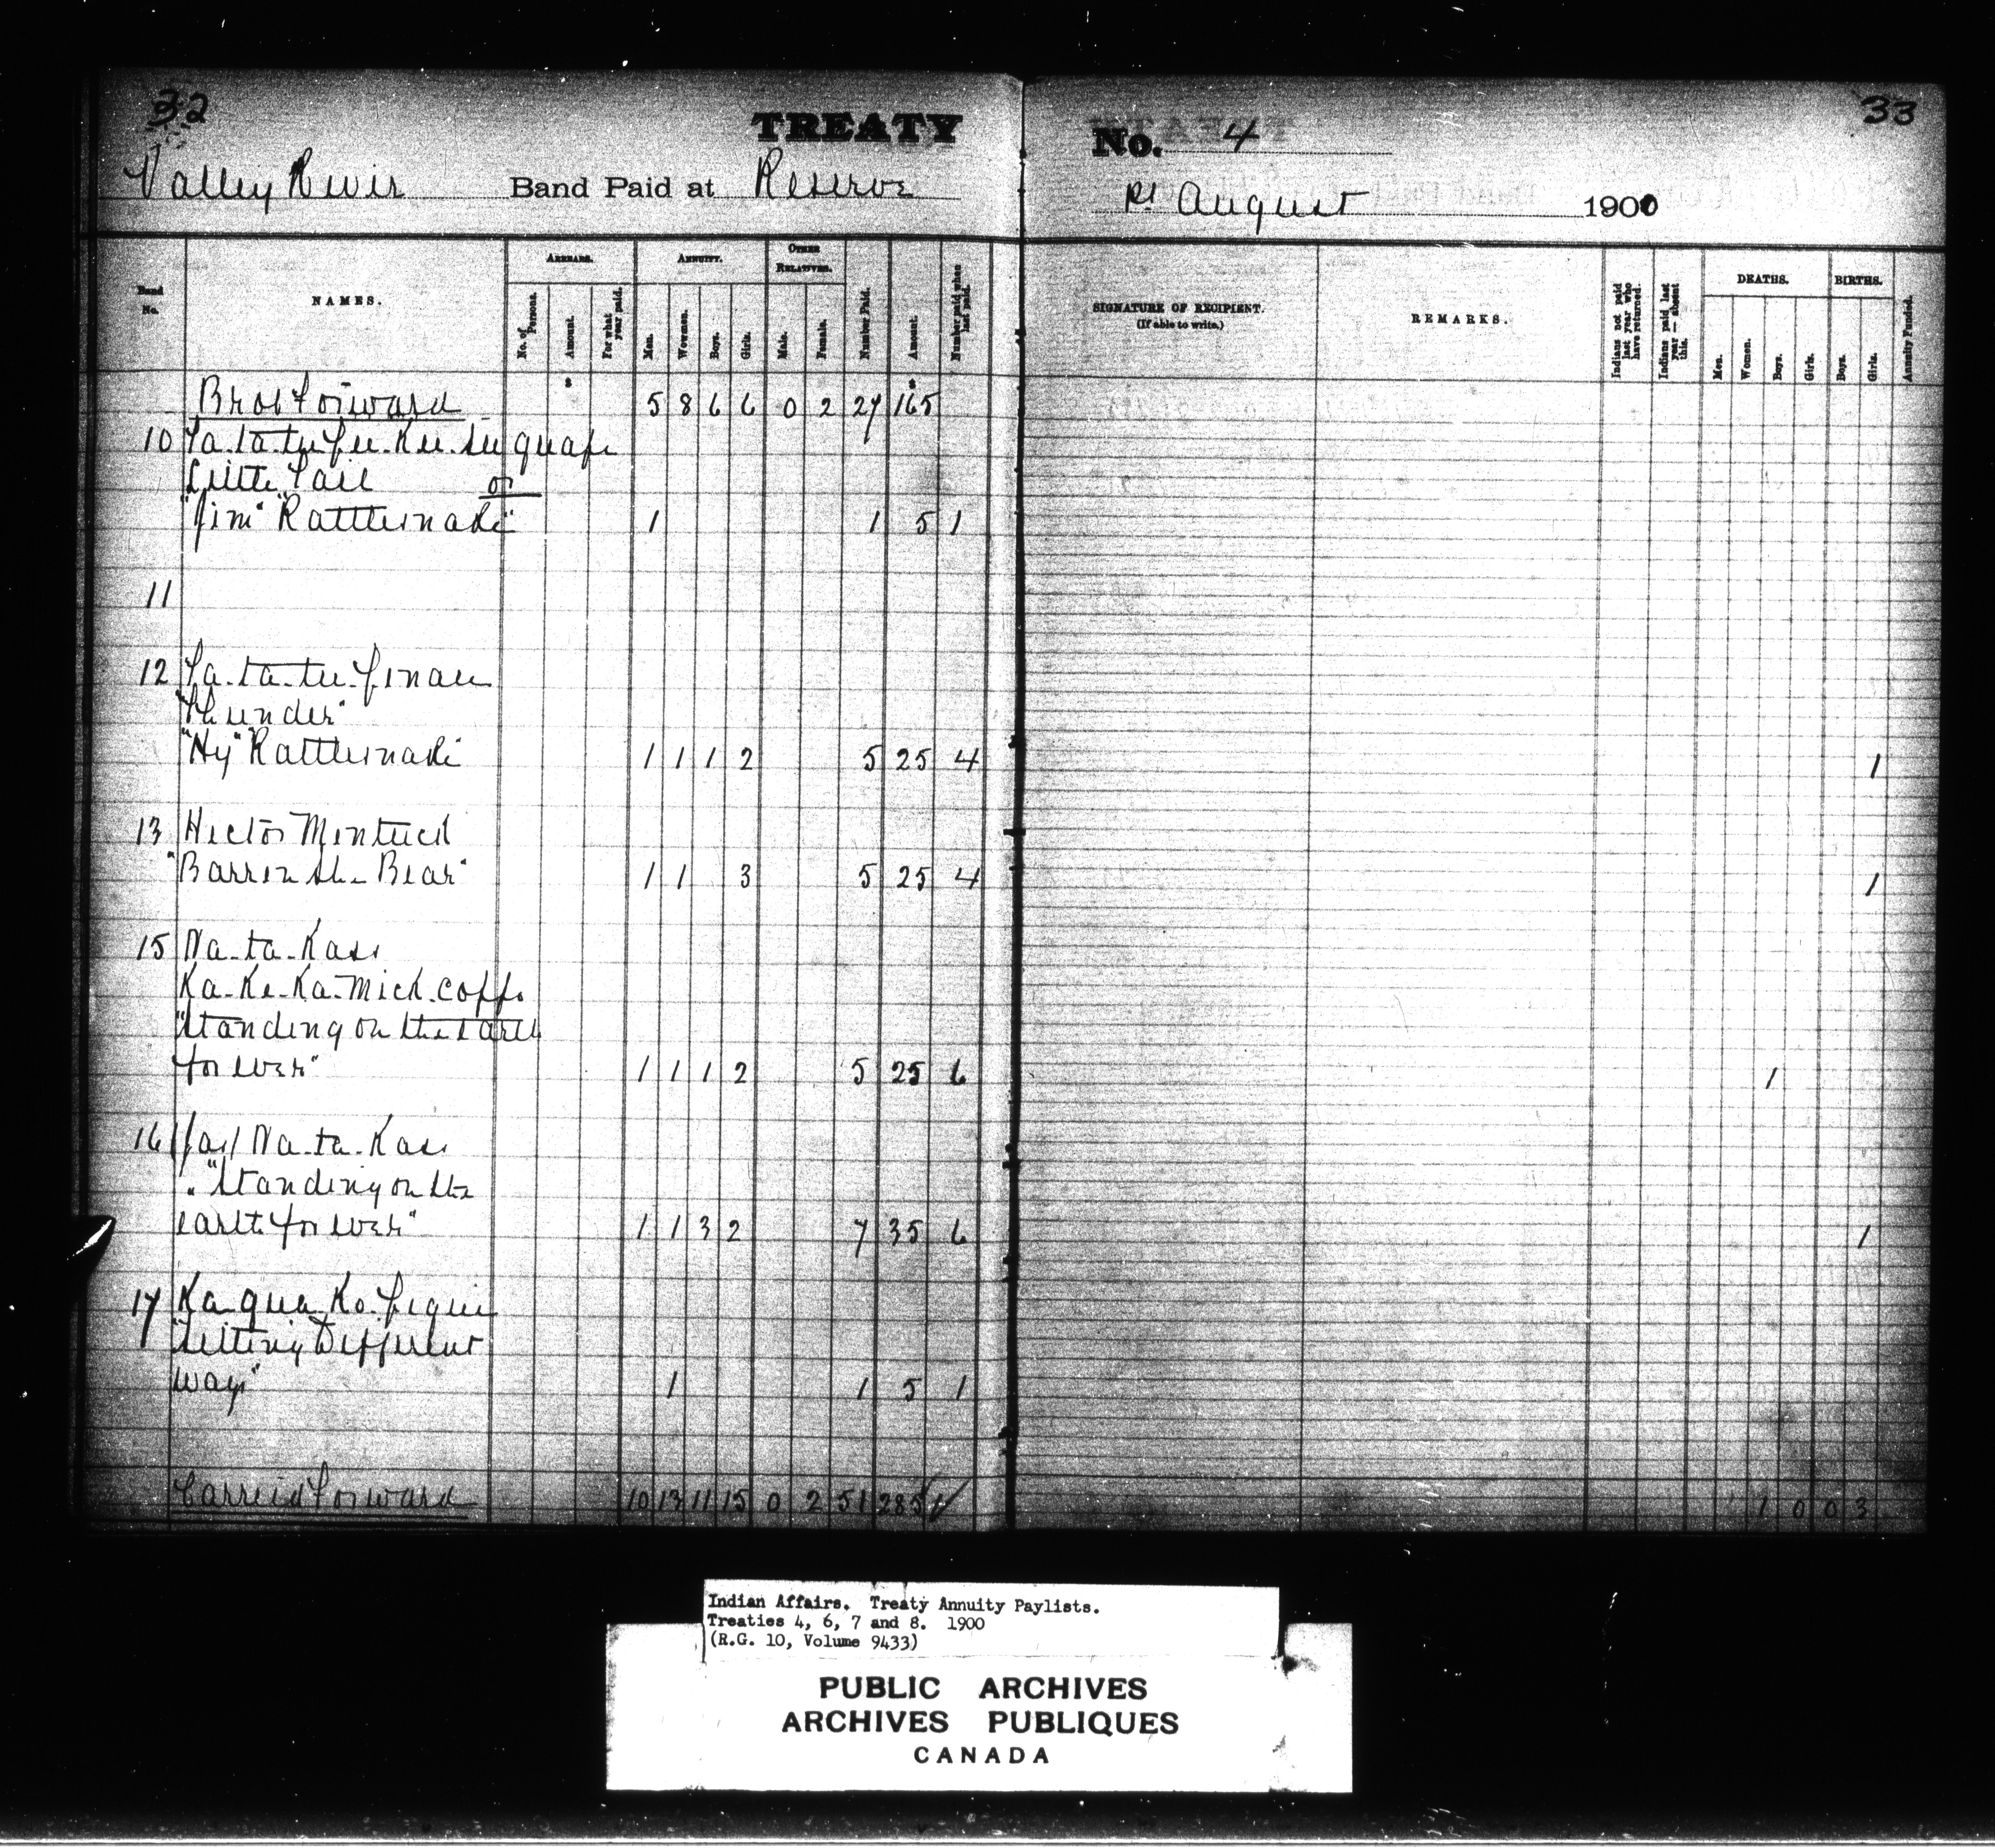 32
TREATY
Valley River Band Paid at Reserve
No. 4
33
August 1900
Band No.
NAMES.
ARREARS.
No. of Persons.
Amount.
For what year paid.
ANNUITY.
Men.
Women.
Boys.
Girls.
OTHER RELATIVES.
Male.
Female.
Number Paid.
Amount.
Number paid when last paid.
SIGNATURE OF RECIPIENT.
(If able to write.)
REMARKS.
Indians not paid last year who have returned.
Indians paid last year — absent this.
DEATHS.
Men.
Women.
Boys.
Girls.
BIRTHS.
Boys.
Girls.
Annuity Funded.
Brot Forward 5 8 6 6 0 2 27 165
10
Little Tail or
"Jim" Rattlesnake" 1 1 5 1
11
12
"Thunder"
"Hy" Rattlesnake" 1 1 1 2 5 25 4 1
13 Hector Mentuck
"Barren the Bear" 1 1 3 5 25 4 1
15 Na-ta-Kass
Ka-Ke-Ka-Mick-
"Standing on the earth
for ever" 1 1 1 2 5 25 6 1
16 Jas/ Na-ta-Kass
"Standing on the
earth for ever" 1 1 3 2 7 35 6 1
17
"Setting Different
ways" 1 1 5 1
Carried Forward 10 13 11 15 0 2 51 285 1 0 0 3
Indian Affairs. Treaty Annuity Paylists.
Treaties 4, 6, 7 and 8. 1900
(R.G. 10, Volume 9433)
PUBLIC ARCHIVES
ARCHIVES PUBLIQUES
CANADA